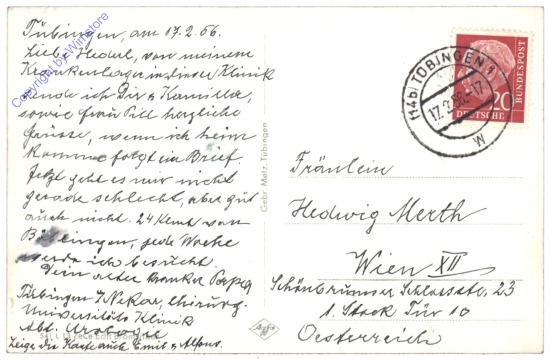 Tübingen, am 17.2.56.
Liebe Hedel, von meinem
Krankenlager in dieser Klinik
sende ich Dir & Kamilla,
sowie Frau Pill herzliche
Grüsse, wenn ich heim
komme folgt ein Brief.
Jetzt geht es mir nicht
gerade schlecht, aber gut
auch nicht. 24 Klmt von
Böblingen, jede Woche
werde ich besucht.
Dein alter kranker
Tübingen / Nekar, Chirurg.
Universitäts Klinik
Abt. Urologie
Zeige die Karte auch Emil & Alfons.
Copyright by Winstore
Gebr. Metz, Tübingen
Agfa
(14b) TÜBINGEN 1
17.2.56-17
W
20
DEUTSCHE
BUNDESPOST
Fräulein
Hedwig Merth
Wien XII
Schönbrunner Schlossstr. 23
1. Stock Tür 10
Oesterreich